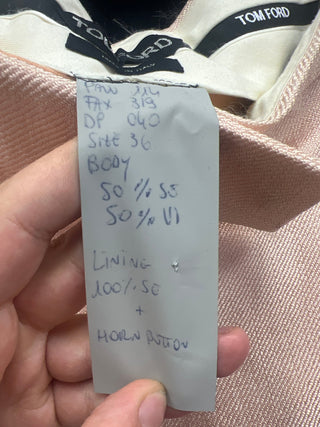 TOM FORD
TOM FORD
PAW 114
FAX 319
DP 040
SIZE 36
BODY
50 % SE
50 % VI
LINING
100% SE
+
HORN BUTTON